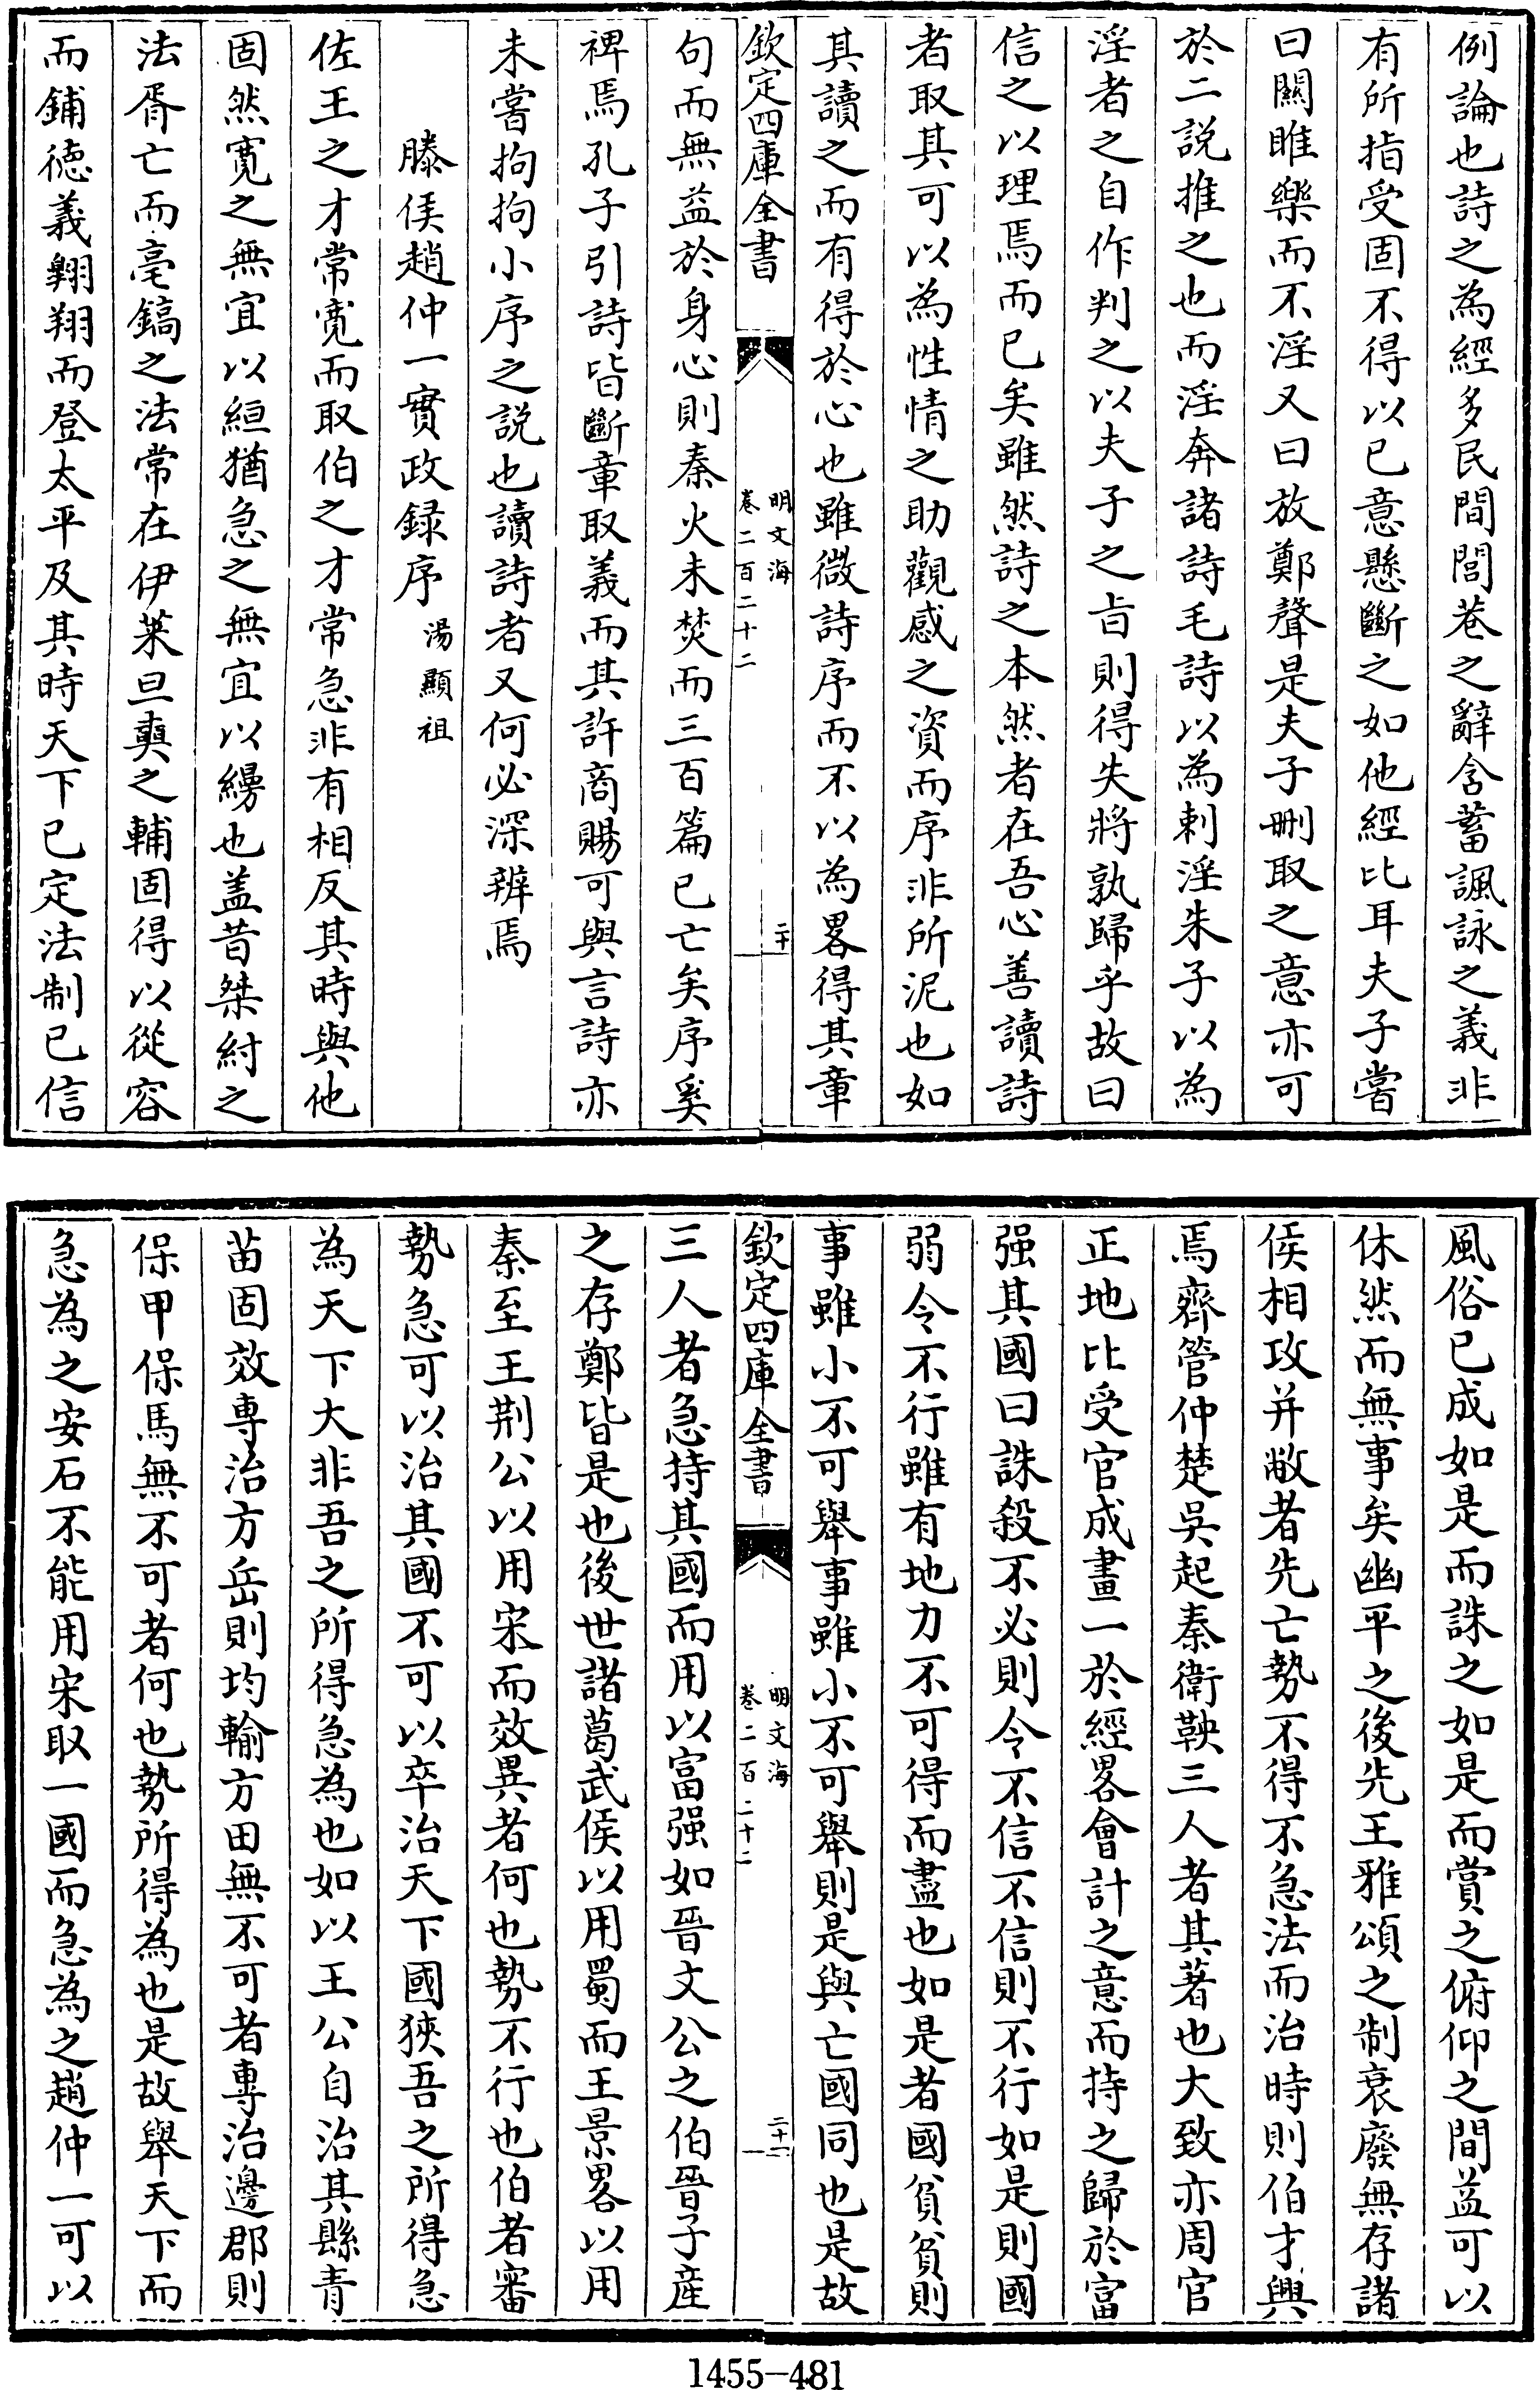 例論也詩之為經多民間閭巷之辭含蓄諷詠之義非
有所指受固不得以已意懸斷之如他經比耳夫子嘗
曰關雎樂而不淫又曰放鄭聲是夫子刪取之意亦可
於二説推之也而淫奔諸詩毛詩以為刺淫朱子以為
淫者之自作判之以夫子之㫖則得失將孰歸乎故曰
信之以理焉而已矣雖然詩之本然者在吾心善讀詩
者取其可以為性情之助觀感之資而序非所泥也如
其讀之而有得於心也雖微詩序而不以為畧得其章
欽定四庫全書
明文海
卷二百二十二
二十
句而無益於身心則秦火未焚而三百篇已亡矣序奚
裨焉孔子引詩皆斷章取義而其許商賜可與言詩亦
未嘗拘拘小序之説也讀詩者又何必深辨焉
滕侯趙仲一實政録序 湯顯祖
佐王之才常寛而取伯之才常急非有相反其時與他
固然寛之無宜以絙猶急之無宜以縵也盖昔桀紂之
法胥亡而亳鎬之法常在伊萊旦奭之輔固得以從容
而鋪徳義翺翔而登太平及其時天下已定法制已信
風俗已成如是而誅之如是而賞之俯仰之間益可以
休然而無事矣幽平之後先王雅頌之制衰廢無存諸
侯相攻并敝者先亡勢不得不急法而治時則伯才興
焉齊管仲楚吳起秦衛鞅三人者其著也大致亦周官
正地比受官成畫一於經畧會計之意而持之歸於富
强其國曰誅殺不必則令不信不信則不行如是則國
弱令不行雖有地力不可得而盡也如是者國貧貧則
事雖小不可舉事雖小不可舉則是與亡國同也是故
欽定四庫全書
明文海
卷二百二十二
二十一
三人者急持其國而用以富强如晉文公之伯晉子産
之存鄭皆是也後世諸葛武侯以用蜀而王景畧以用
秦至王荆公以用宋而效異者何也勢不行也伯者審
勢急可以治其國不可以卒治天下國狹吾之所得急
為天下大非吾之所得急為也如以王公自治其縣青
苗固效専治方岳則均輸方田無不可者専治邊郡則
保甲保馬無不可者何也勢所得為也是故舉天下而
急為之安石不能用宋取一國而急為之趙仲一可以
1455-481